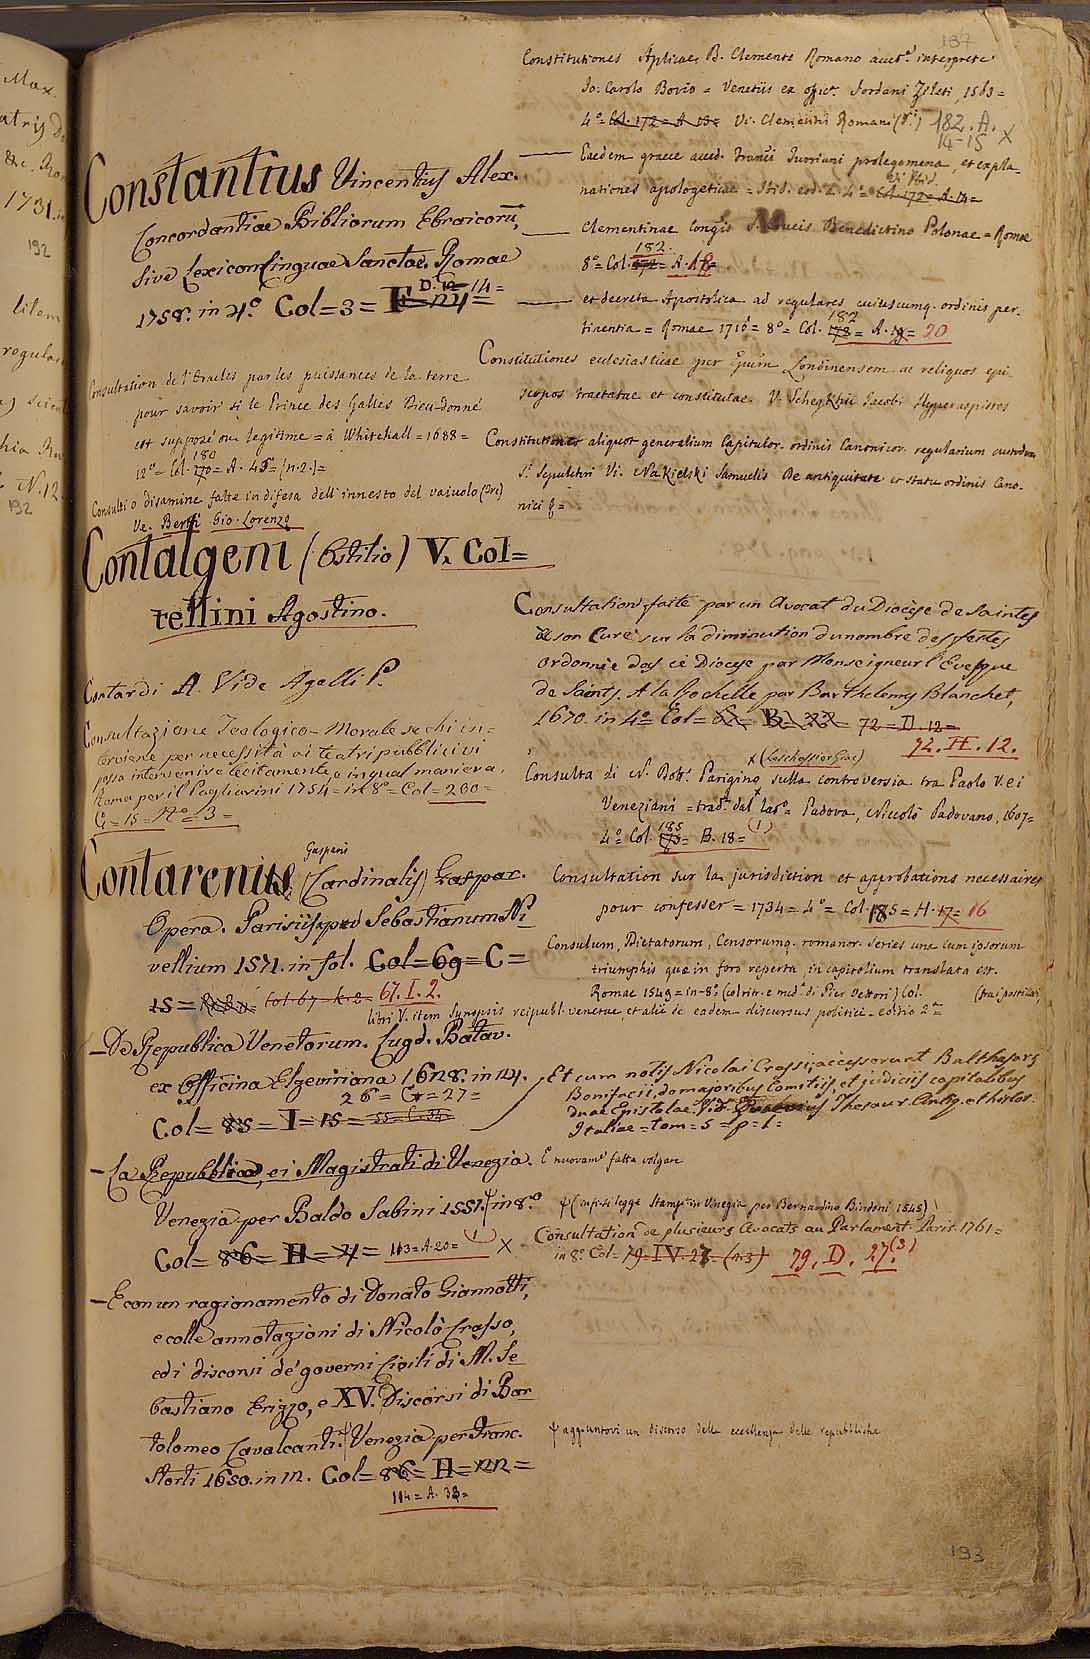 137
Constantius Vincentius Alex.
Concordantiae Bibliorum Ebraicorū,
sive Lexicon Linguae Sanctae. Romae
D. 12 14=
1758. in 4º Col=3=
Consultation de l'Oracles par les puissances de la terre
pour savoir si le Prince des Galles Dieu-donné
est supposé ou legitime = à Whitehall = 1688 =
180
12º = Col. 170 = A. 45 = (n. 2.) =
Consulti o disamine fatte in difesa dell'innesto del vaiuolo (Tre)
Ve. Berti Gio. Lorenzo
Contalgeni (Ostilio) V. Col=
tellini Agostino.
Contardi A. Vide Agelli P.
Consultazione Teologico-Morale se chi in=
terviene per necessità ai teatri pubblici vi
possa intervenire lecitamente, e in qual maniera.
Roma per il Pagliarini 1754 = in 8º = Col = 200 =
G = 15 = Nº = 3 =
Gasparis
Contarenus (Cardinalis) Gaspar.
Opera. Parisiis apud Sebastianum Ni
vellium 1571. in fol. Col=69=C=
15= Col. 67. K. 2. 67. I. 2.
libri V. item Synopsis reipubl. venetae, et alii de eadem discursus politici. editio 2ª
— De Republica Venetorum. Lugd. Batav.
ex Officina Elzeviriana 1628. in 24.
26 = G = 27 =
Col= 85 = I = 15 =
— La Repubblica, ei Magistrati di Venezia.
E nuovamᵉ fatta volgare
Venezia per Baldo Sabini 1551. in 8.º
Col= 86 = H = 4 = 113 = A. 20 = (1) X
— E con un ragionamento di Donato Giannotti,
e colle annotazioni di Nicolò Crasso,
ed i discorsi de' governi Civili di M. Se
bastiano Erizzo, e XV. Discorsi di Bar
tolomeo Cavalcanti. Venezia per Franc.
Storti 1650. in 12. Col= 86 = H = 22 =
114 = A. 33 =
Constitutiones Aplicae, B. Clemente Romano auctᵉ. interprete
Jo: Carolo Bovio = Venetiis ex officᵃ. Jordani Zileti, 1563 =
4º = Col. 172 = A 13 = Vi. Clementis Romani (S.ⁱ) 182. A.
14-15 X
— Eaedem graece acced. Turriani prolegomena, et expla
nationes apologeticae = 4º = Col. 172 = A. 14 =
— Clementinae Congis S. Crucis Benedictino Polonae = Romae
182.
8º = Col. 172 = A. 18 =
— et decreta Apostolica ad regulares cuiuscumq. ordinis per-
182
tinentia = Romae 1710 = 8º = Col. 172 = A. 19 = 20
Constitutiones ecclesiasticae per Epum Londinensem ac reliquos epi
scopos tractatae et constitutae. V. Schegkhii Jacobi Hyperaspistes
Constitutiones aliquot generalium Capitulor. ordinis Canonicor. regularium custodum
S.ⁱ Sepulchri Vi. Nakielski Samuelis De antiquitate et statu ordinis Cano-
nici &=
Consultation faite par un Avocat du Diocèse de Saintes
à son Curé sur la diminution du nombre des festes
ordonnée das cé Diocese par Monseigneur l'Evesque
de Saints. A la Rochelle par Barthelemy Blanchet,
1670. in 4º Col= = B = 22 = 72 = D. 12 =
72. H. 12.
X (Leschassier Giac)
Consulta di N. Dottʳ. Parigino sulla controversia tra Paolo V. e i
Veneziani = tradᵃ. dal Latº = Padova, Niccolò Padovano, 1607 =
185 (1)
4º Col. 175 = B. 18 =
Consultation sur la jurisdiction et approbations necessaires
pour confesser = 1734 = 4º = Col. 185 = H. 17 = 16
Consulum, Dictatorum, Censorumq. romanor. series una cum ipsorum
triumphis quae in foro reperta, in capitolium translata est.
Romae 1549 = in-8º. (col ritr. e medᵃ. di Pier Vettori) Col. (tra i postillati)
Et cum notis Nicolai Crassi; accesserunt Balthasars
Bonifacii, de majoribus Comitiis, et judiciis capitalibus
duae Epistolae. Vid. Graevius Thesaur. Antiq. et histor.
Italiae = tom = 5 = p = 1 =
ψ (in fi. si legge Stampᵃ. in Venezia per Bernardino Bindoni 1545)
Consultation de plusieurs Avocats au Parlament. Paris. 1761 =
in 8º. Col. 79 = IV. 27 = (n. 3) 79. D. 27. (3)
ψ aggiuntovi un discorso della eccellenza delle repubbliche
193